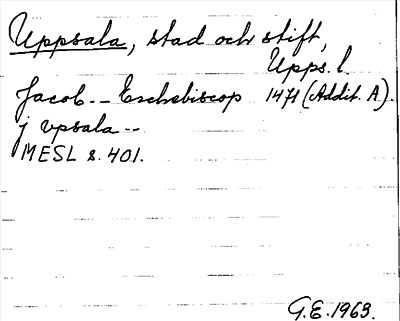 Uppsala, stad och stift,
Upps. l.
Jacob -- Erchebiscop 1471 (Addit. A).
j vpsala --
MESL s. 401.
G.E. 1963.